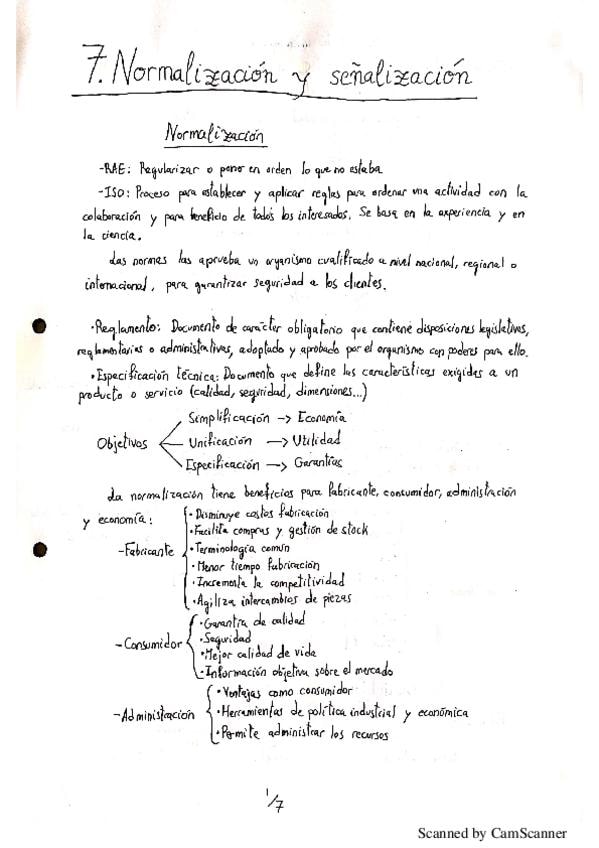 7. Normalización y señalización
Normalización
-RAE: Regularizar o poner en orden lo que no estaba
-ISO: Proceso para establecer y aplicar reglas para ordenar una actividad con la
colaboración y para beneficio de todos los interesados. Se basa en la experiencia y en
la ciencia.
Las normas las aprueba un organismo cualificado a nivel nacional, regional o
internacional, para garantizar seguridad a los clientes.
•Reglamento: Documento de carácter obligatorio que contiene disposiciones legislativas,
reglamentarias o administrativas, adoptado y aprobado por el organismo con poderes para ello.
•Especificación técnica: Documento que define las características exigidas a un
producto o servicio (calidad, seguridad, dimensiones...)
Simplificación -> Economía
Objetivos Unificación -> Utilidad
Especificación -> Garantías
La normalización tiene beneficios para fabricante, consumidor, administración
y economía:
-Fabricante
•Disminuye costos fabricación
•Facilita compras y gestión de stock
•Terminología común
•Menor tiempo fabricación
•Incrementa la competitividad
•Agiliza intercambios de piezas
-Consumidor
•Garantía de calidad
•Seguridad
•Mejor calidad de vida
•Información objetiva sobre el mercado
-Administración
•Ventajas como consumidor
•Herramientas de política industrial y económica
•Permite administrar los recursos
1/7
Scanned by CamScanner